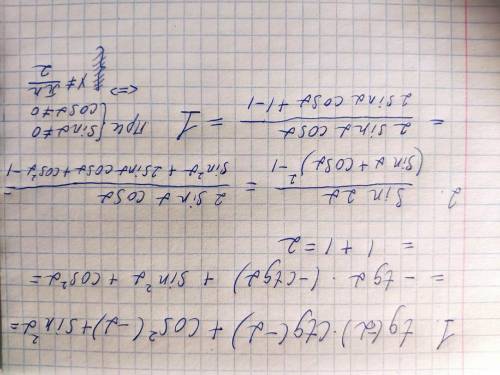 1. tg(-α)·ctg(-α) + cos²(-α) + sin²α =
= -tgα · (-ctgα) + sin²α + cos²α =
= 1 + 1 = 2
2. sin 2α / (sin α + cos α)² - 1 = 2 sin α cos α / sin²α + 2 sin α cos α + cos²α - 1 =
= 2 sin α cos α / 2 sin α cos α + 1 - 1 = 1 при { sin α ≠ 0 cos α ≠ 0
<=> x ≠ πn / 2